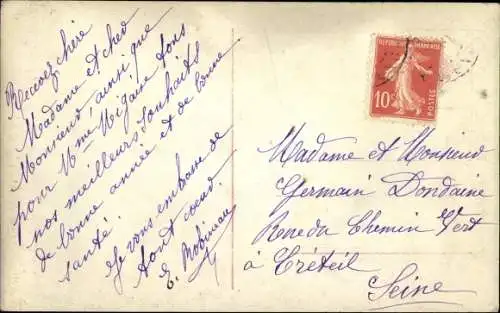 Recevez chère
Madame et cher
Monsieur ainsi que
pour Mme Migaise tous
nos meilleurs souhaits
de bonne année et de bonne
santé.
Je vous embrasse de
tout cœur
E. Robineau
REPUBLIQUE FRANÇAISE
10c
POSTES
Madame et Monsieur
Germain Dondaine
Rue du Chemin Vert
à Créteil
Seine